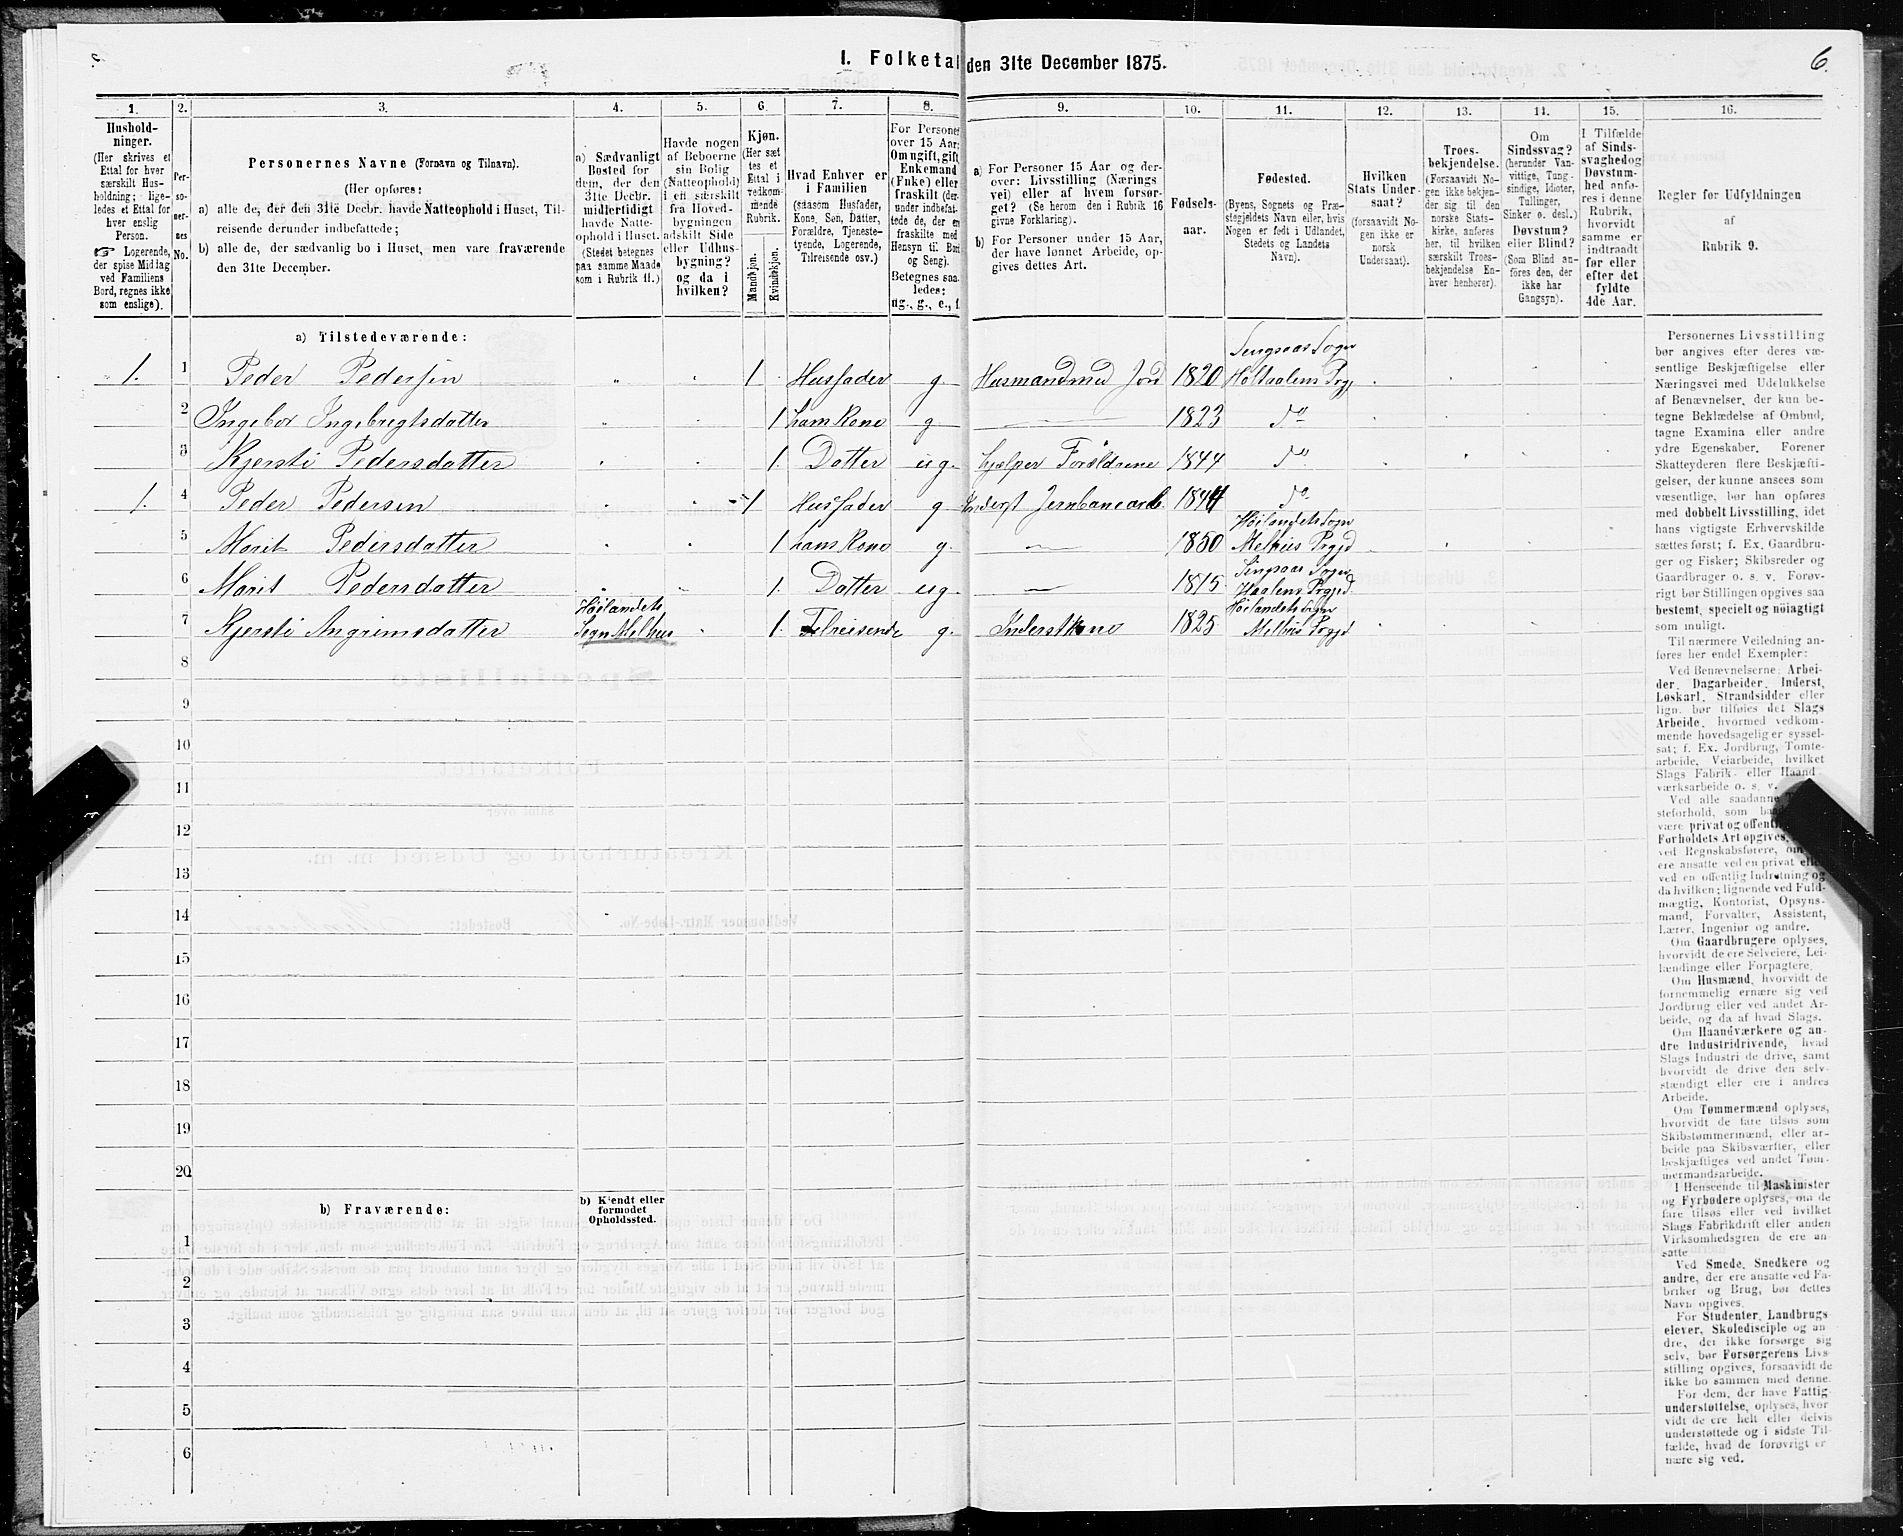 I. Folketal den 31te December 1875.
6.
1.
Hushold-
ninger.
(Her skrives et
Ettal for hver
særskilt Hus-
holdning; lige-
ledes et Ettal for
hver enslig
Person.
Logerende,
der spise Middag
ved Familiens
Bord, regnes ikke
som enslige).
2.
Per-
so-
ner-
nes
No.
3.
Personernes Navne (Fornavn og Tilnavn).
(Her opføres:
a) alle de, der den 31te Decbr. havde Natteophold i Huset, Til-
reisende derunder indbefattede;
b) alle de, der sædvanlig bo i Huset, men vare fraværende
den 31te December.
4.
a) Sædvanligt
Bosted for
dem, der den
31te Decbr.
midlertidigt
havde Natte-
ophold i Huset.
(Stedet betegnes
paa samme Maade
som i Rubrik 11.)
5.
Havde nogen
af Beboerne
sin Bolig
(Natteophold)
i en særskilt
fra Hoved-
bygningen
adskilt Side
eller Udhus-
bygning?
og da i
hvilken?
6.
Kjøn.
(Her sæt
tes et
Ettal i
vedkom-
mende
Rubrik.
Mandkjøn.
Kvindekjøn.
7.
Hvad Enhver er
i Familien
(saasom Husfader,
Kone, Søn, Datter,
Forældre, Tjeneste-
tyende, Logerende,
Tilreisende osv.)
8.
For Personer
over 15 Aar:
Om ugift, gift,
Enkemand
(Enke) eller
fraskilt (der-
under indbefat-
tede de, der er
fraskilte med
Hensyn til Bord
og Seng).
Betegnes saa-
ledes:
ug., g., e., f.
9.
a) For Personer 15 Aar og der-
over: Livsstilling (Nærings
vei) eller af hvem forsør-
get? (Se herom den i Rubrik 16
givne Forklaring).
b) For Personer under 15 Aar,
der have lønnet Arbeide, op-
gives dettes Art.
10.
Fødsels-
aar.
11.
Fødested.
(Byens, Sognets og Præ-
stegjeldets Navn eller, hvis
Nogen er født i Udlandet,
Stedets og Landets
Navn).
12.
Hvilken
Stats Under-
saat?
(forsaavidt No-
gen ikke er
norsk
Undersaat).
13.
Troes-
bekjendelse.
(Forsaavidt No-
gen ikke bekjen-
der sig til den
norske Stats-
kirke, anføres
her, til hvilken
særskilt Troes-
bekjendelse En-
hver henhører).
14.
Om
Sindssvag?
(herunder Van-
vittige, Tung-
sindige, Idioter,
Sinker o. desl.)
Døvstum?
eller Blind?
(Som Blind an-
føres den, der
ikke har
Gangsyn).
15.
I Tilfælde
af Sinds-
svaghed og
Døvstum-
hed anfø-
res i denne
Rubrik,
hvorvidt
samme er
indtraadt
før eller
efter det
fyldte
4de Aar.
16.
Regler for Udfyldningen
af
Rubrik 9.
a) Tilstedeværende:
1. 1 Peder Pedersen 1 Husfader g. Husmand med Jord 1820 Singsaas Sogn
Holtaalens Prgj
2 Ingebor Ingebrigtsdatter 1 hans Kone g 1823 do
3 Kjersti Pedersdatter 1. Datter ug. hjælper Forældrene 1844 do
1. 4 Peder Pedersen 1 Husfader g Inderst Jernbanearb. 1844 do
5 Marit Pedersdatter 1 hans Kone g. 1850 Høilandets Sogn
Melhus Prgjd
6 Marit Pedersdatter 1. Datter ug. 1875 Singsaas Sogn
Haalens Prgjd
7 Kjersti Angrimsdatter Høilandets
Sogn Melhus 1. Tilreisende g. Inderstkone 1825 Høilandets Sogn
Melhus Prgjd
8
9
10
11
12
13
14
15
16
17
18
19
20
b) Fraværende:
b) Kjendt eller
formodet
Opholdssted.
1
2
3
4
5
6
Personernes Livsstilling
bør angives efter deres væ-
sentlige Beskjæftigelse eller
Næringsvei med Udelukkelse
af Benævnelser, der kun be-
tegne Beklædelse af Ombud,
tagne Examina eller andre
ydre Egenskaber. Forener
Skatteyderen flere Beskjæfti-
gelser, der kunne ansees som
væsentlige, bør han opføres
med dobbelt Livsstilling, idet
hans vigtigste Erhvervskilde
sættes først; f. Ex. Gaardbru-
ger og Fisker; Skibsreder og
Gaardbruger o. s. v. Forøv-
rigt bør Stillingen opgives saa
bestemt, specielt og nøiagtigt
som muligt.
Til nærmere Veiledning an-
føres her endel Exempler:
Ved Benævnelserne: Arbei-
der, Dagarbeider, Inderst,
Løskarl, Strandsidder eller
lign. bør tilføies det Slags
Arbeide, hvormed vedkom-
mende hovedsagelig er syssel-
sat; f. Ex. Jordbrug, Tomte-
arbeide, Veiarbeide, hvilket
Slags Fabrik- eller Haand
værksarbeide o. s. v.
Ved alle saadanne
steforhold, som
være privat og
Forholdets Art opgives,
ved Regnskabsførere,
ere ansatte ved en privat
ved en offentlig Indretning og
da hvilken; lignende ved Fuld-
mægtig, Kontorist, Opsyns-
mand, Forvalter, Assistent,
Lærer, Ingeniør og andre.
Om Gaardbrugere oplyses,
hvorvidt de ere Selveiere, Lei-
lændinge eller Forpagtere.
Om Husmænd, hvorvidt de
fornemmelig ernære sig ved
Jordbrug eller ved andet Ar-
beide, og da af hvad Slags.
Om Haandværkere og an-
dre Industridrivende, hvad
Slags Industri de drive, samt
hvorvidt de drive den selv-
stændigt eller ere i andres
Arbeide.
Om Tømmermænd oplyses,
hvorvidt de fare tilsøs som
Skibstømmermænd, eller ar-
beide paa Skibsværfter, eller
beskjæftiges ved andet Tøm-
mermandsarbeide.
I Henseende til Maskinister
og Fyrbødere oplyses, om de
fare tilsøs eller ved hvilket
Slags Fabrikdrift eller anden
Virksomhedsgren de ere an-
satte
Ved Smede, Snedkere og
andre, der ere ansatte ved Fa-
briker og Brug, bør dettes
Navn opgives.
For Studenter, Landbrugs-
elever, Skoledisciple og an
dre, der ikke forsørge sig
selv, bør Forsørgerens Livs-
stilling opgives, forsaavidt de
ikke bo sammen med denne.
For dem, der have Fattig-
understøttelse, oplyses, hvor
vidt de ere helt eller delvis
understøttede og i sidste Til-
fælde, hvad de forøvrigt er
nære sig ved.